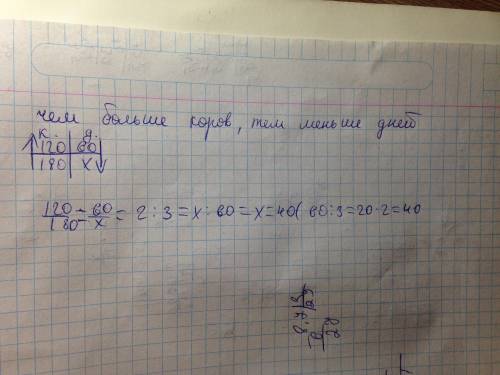 чем больше коров, тем меньше дней
к. д.
120 60
180 x
120/180 = 60/x = 2:3 = x:60 = x=40( 60:3=20·2=40